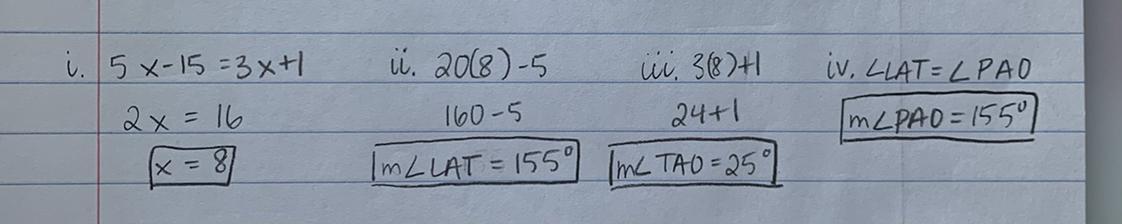 i. 5x-15=3x+1
2x = 16
x = 8
ii. 20(8)-5
160-5
m∠LAT = 155°
iii. 3(8)+1
24+1
m∠TAO = 25°
iv. ∠LAT = ∠PAO
m∠PAO = 155°